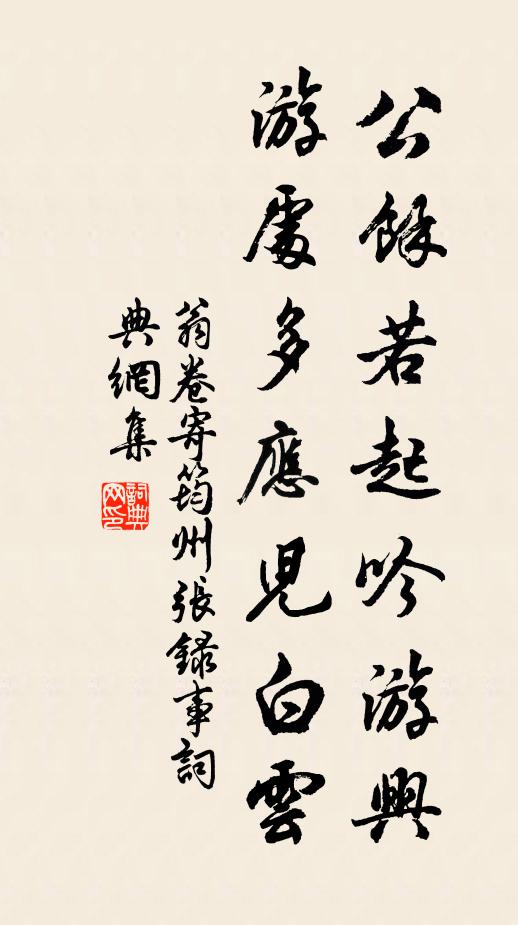 公餘若起吟游興
游處多應見白雲
翁卷寄筠州張録事詞
典網集
詞典
网印